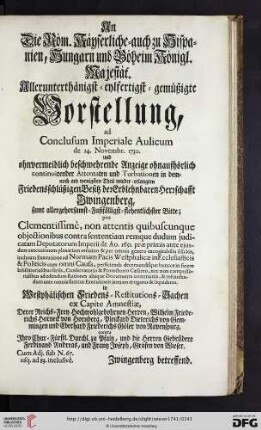 An
Die Röm. Käyserliche-auch zu Hispa-
nien, Hungarn und Böheim Königl.
Majestät.
Allerunterthänigst-eylfertigst-gemüßigte
Vorstellung,
ad
Conclusum Imperiale Aulicum
de 24. Novembr. 1732.
und
ohnvermeidlich beschwehrende Anzeige ohnaufhörlich
continuirender Attentaten und Turbationen in dem-
noch am wenigsten Theil wieder-erlangten
Friedensschlüßigen Besitz der Erblehnbaren Herrschafft
Zwingenberg,
samt allergehorsamst-Fußfälligst-flehentlichster Bitte;
pro
Clementissimè, non attentis quibuscunque
objectionibus contra sententiam remque dudum judi-
catam Deputatorum Imperii de An. 1651.
in
Westphälischen Friedens-Restitutions-Sachen
ex Capite Amnestiæ,
Derer Reichs-Frey Hochwohlgebohrnen Herren, Wilhelm Friede-
richs Horneck von Hornberg, Pleickard Dieterichs von Gem-
mingen und Eberhard Friederichs Göler von Ravensburg.
contra
Ihro Chur-Fürstl. Durchl. zu Pfaltz, und die Herren Gebrüdere
Ferdinand Andreas, und Frantz Joseph, Grafen von Wieser.
Cum Adj. sub N. 67.
usq; ad 83. inclusivè.
Zwingenberg betreffend.
http://digi.ub.uni-heidelberg.de/diglit/wieser1741/0241
© Universitätsbibliothek Heidelberg
gefördert durch die
DFG